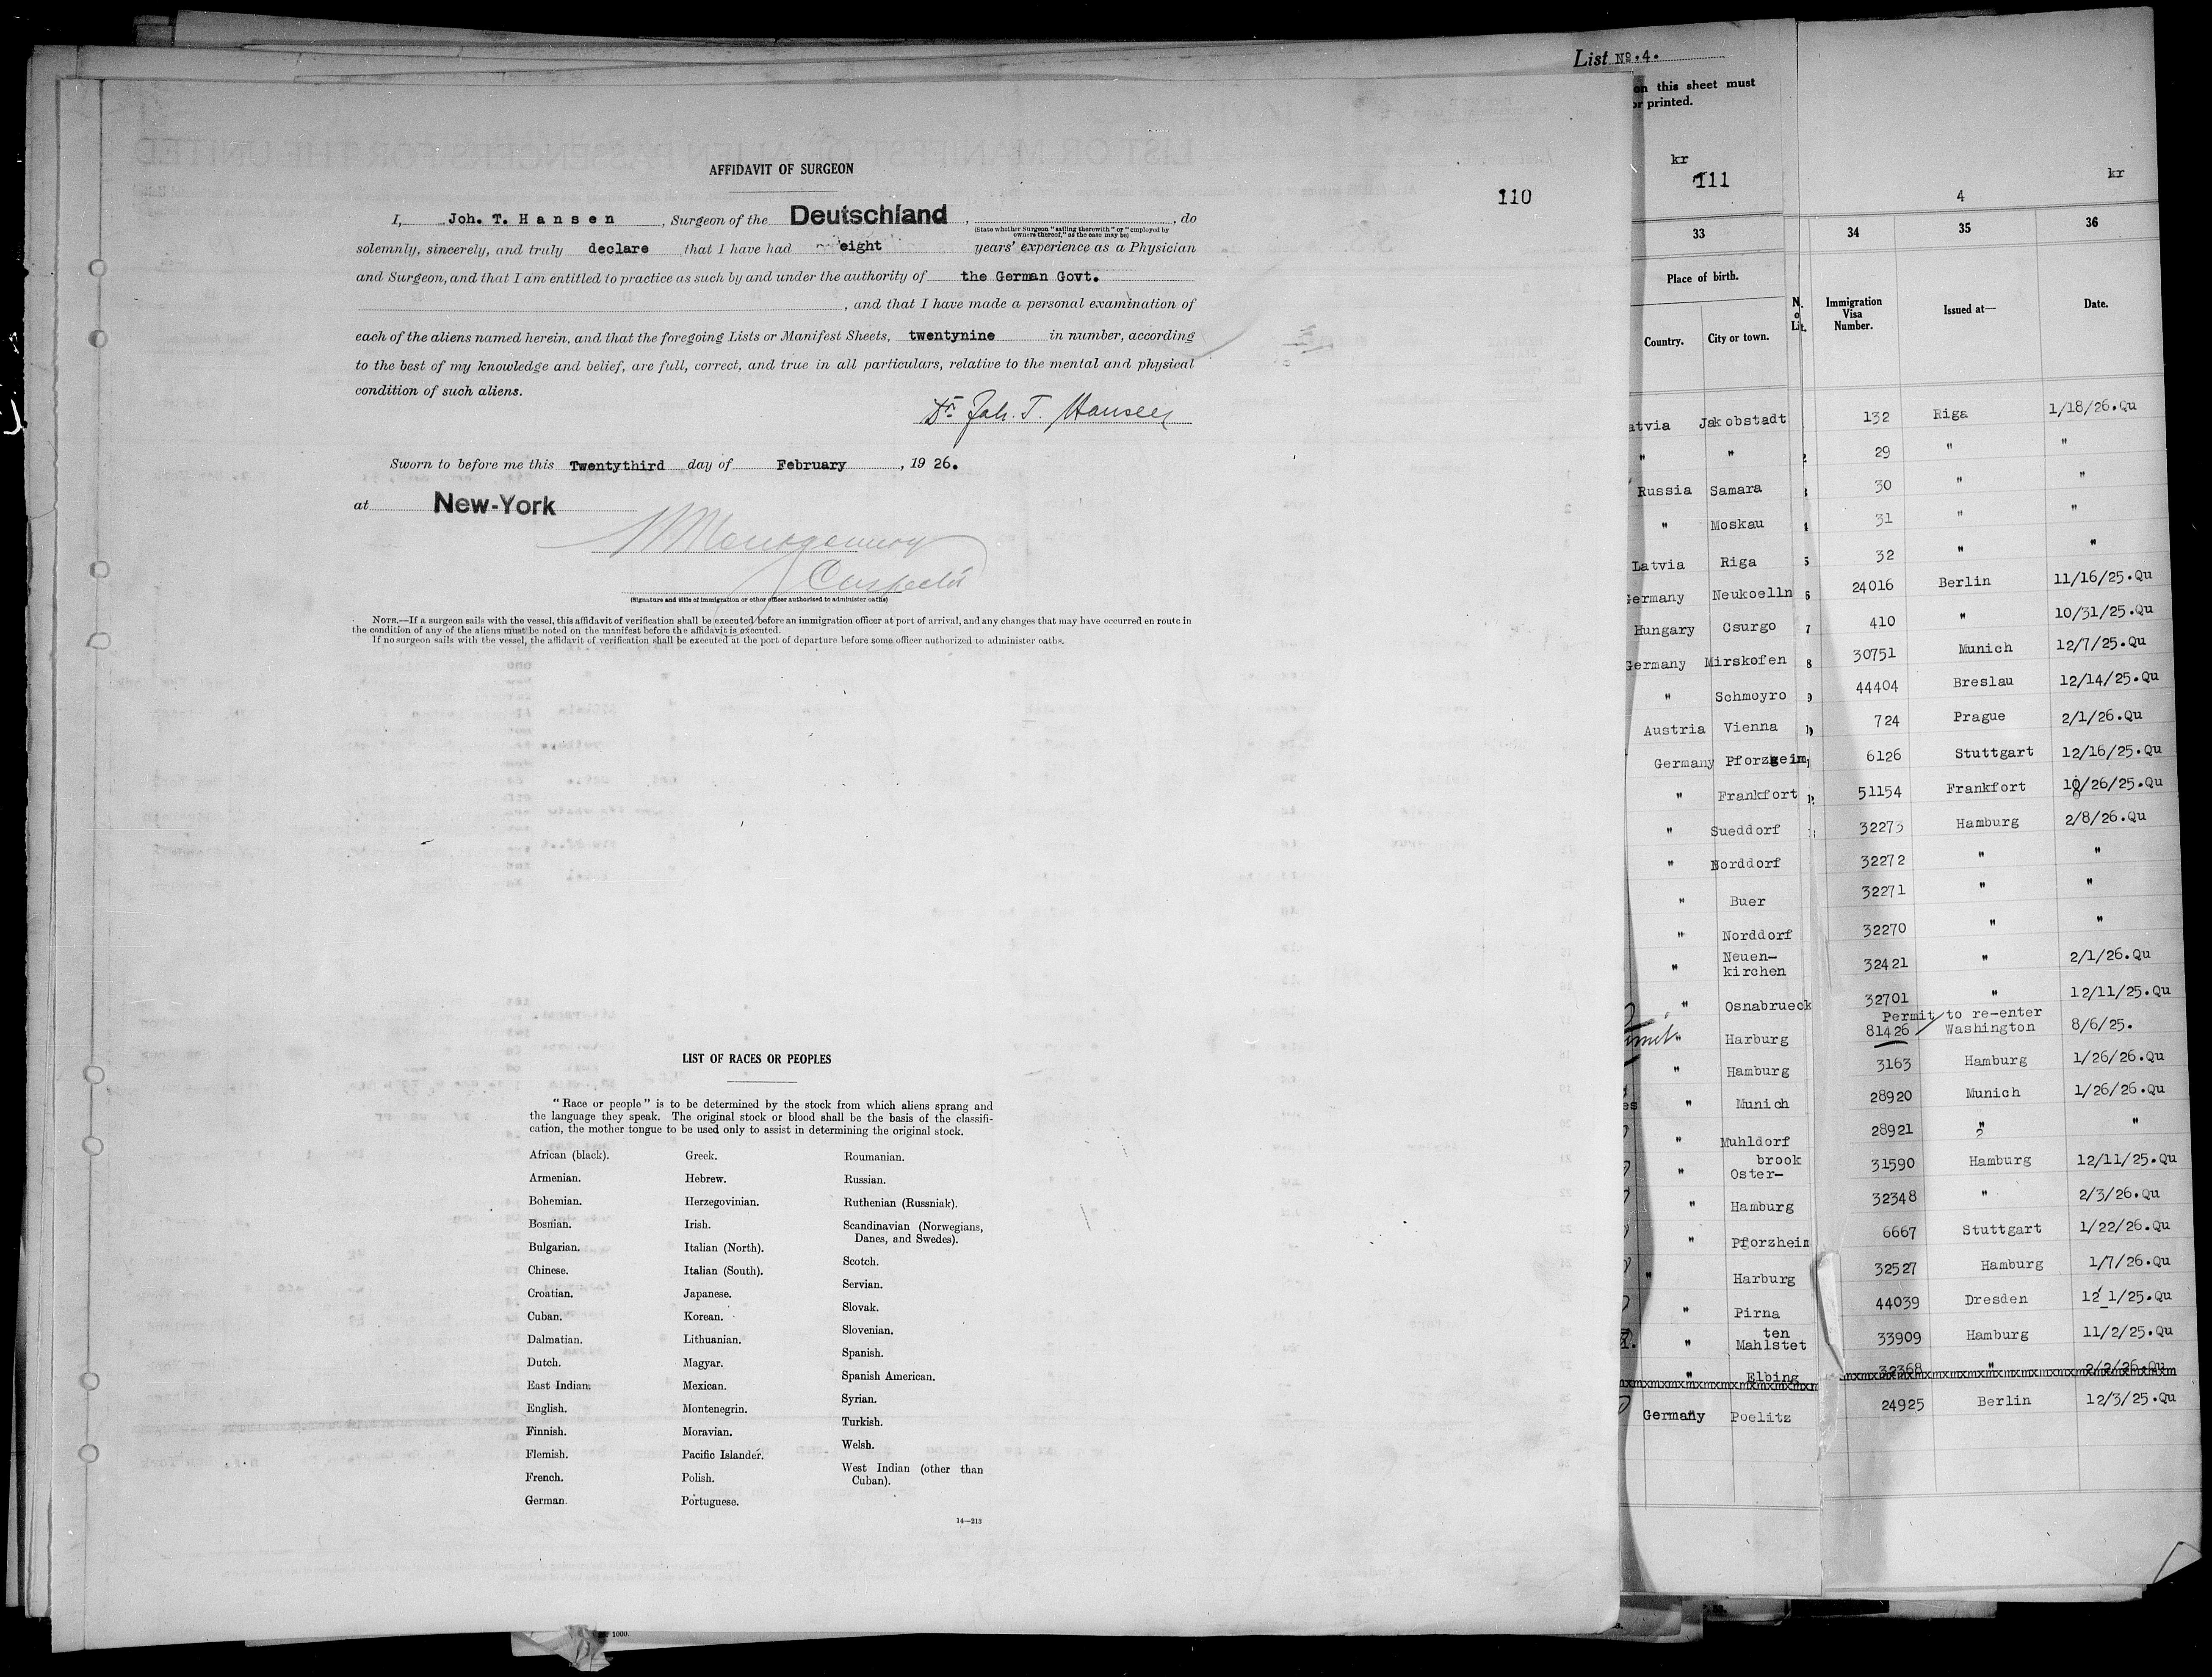 AFFIDAVIT OF SURGEON
110
I, Joh. T. Hansen, Surgeon of the Deutschland, , do
(State whether Surgeon "sailing therewith" or "employed by
owners thereof," as the case may be)
solemnly, sincerely, and truly declare that I have had eight years' experience as a Physician
and Surgeon, and that I am entitled to practice as such by and under the authority of the German Govt.
, and that I have made a personal examination of
each of the aliens named herein, and that the foregoing Lists or Manifest Sheets, twentynine in number, according
to the best of my knowledge and belief, are full, correct, and true in all particulars, relative to the mental and physical
condition of such aliens.
Dr. Joh. T. Hansen
Sworn to before me this Twentythird day of February, 19 26.
at New-York
Montgomery
Inspector
(Signature and title of immigration or other officer authorized to administer oaths)
NOTE.—If a surgeon sails with the vessel, this affidavit of verification shall be executed before an immigration officer at port of arrival, and any changes that may have occurred en route in
the condition of any of the aliens must be noted on the manifest before the affidavit is executed.
If no surgeon sails with the vessel, the affidavit of verification shall be executed at the port of departure before some officer authorized to administer oaths.
LIST OF RACES OR PEOPLES
"Race or people" is to be determined by the stock from which aliens sprang and
the language they speak. The original stock or blood shall be the basis of the classifi-
cation, the mother tongue to be used only to assist in determining the original stock.
African (black).
Armenian.
Bohemian.
Bosnian.
Bulgarian.
Chinese.
Croatian.
Cuban.
Dalmatian.
Dutch.
East Indian.
English.
Finnish.
Flemish.
French.
German.
Greek.
Hebrew.
Herzegovinian.
Irish.
Italian (North).
Italian (South).
Japanese.
Korean.
Lithuanian.
Magyar.
Mexican.
Montenegrin.
Moravian.
Pacific Islander.
Polish.
Portuguese.
Roumanian.
Russian.
Ruthenian (Russniak).
Scandinavian (Norwegians,
Danes, and Swedes).
Scotch.
Servian.
Slovak.
Slovenian.
Spanish.
Spanish American.
Syrian.
Turkish.
Welsh.
West Indian (other than
Cuban).
14—213
List No. 4.
on this sheet must
or printed.
kr
111
4
kr
33 34 35 36
Place of birth.
Country. City or town.
Immigration
Visa
Number.
Issued at—
Date.
atvia Jakobstadt 132 Riga 1/18/26.Qu
" " 2 29 " "
Russia Samara 30 " "
" Moskau 4 31 " "
Latvia Riga 5 32 " "
Germany Neukoelln 6 24016 Berlin 11/16/25.Qu
Hungary Csurgo 7 410 " 10/31/25.Qu
Germany Mirskofen 8 30751 Munich 12/7/25.Qu
" Schmoyro 9 44404 Breslau 12/14/25.Qu
Austria Vienna 724 Prague 2/1/26.Qu
Germany Pforzheim 6126 Stuttgart 12/16/25.Qu
" Frankfort 51154 Frankfort 10/26/25.Qu
" Sueddorf 32273 Hamburg 2/8/26.Qu
" Norddorf 32272 " "
" Buer 32271 " "
" Norddorf 32270 " "
" Neuen-
kirchen 32421 " 2/1/26.Qu
" Osnabrueck 32701 " 12/11/25.Qu
Permit to re-enter
" Harburg 81426 Washington 8/6/25.
" Hamburg 3163 Hamburg 1/26/26.Qu
" Munich 28920 Munich 1/26/26.Qu
" Muhldorf 28921 " "
brook
" Oster- 31590 Hamburg 12/11/25.Qu
" Hamburg 32348 " 2/3/26.Qu
" Pforzheim 6667 Stuttgart 1/22/26.Qu
" Harburg 32527 Hamburg 1/7/26.Qu
" Pirna 44039 Dresden 12/1/25.Qu
ten
" Mahlstet 33909 Hamburg 11/2/25.Qu
" Elbing 32368 " 2/2/26.Qu
Germany Poelitz 24925 Berlin 12/3/25.Qu